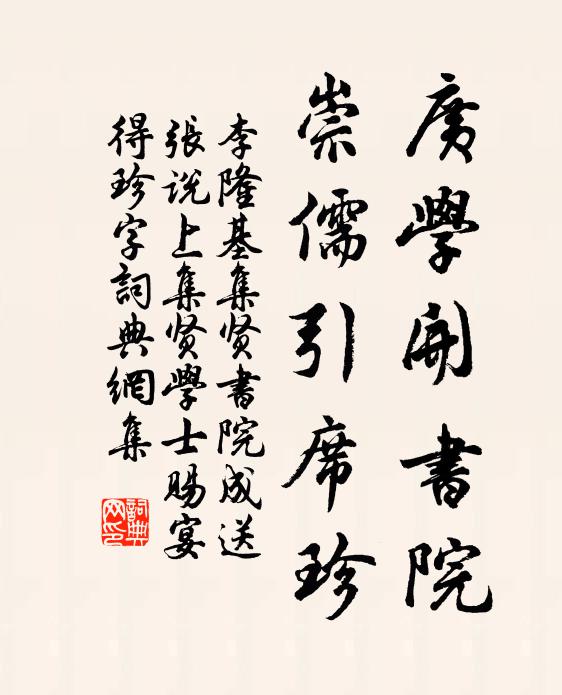 廣學開書院
崇儒引席珍
李隆基集贤書院成送
張说上集贤學士赐宴
得珍字詞典網集
詞典网印